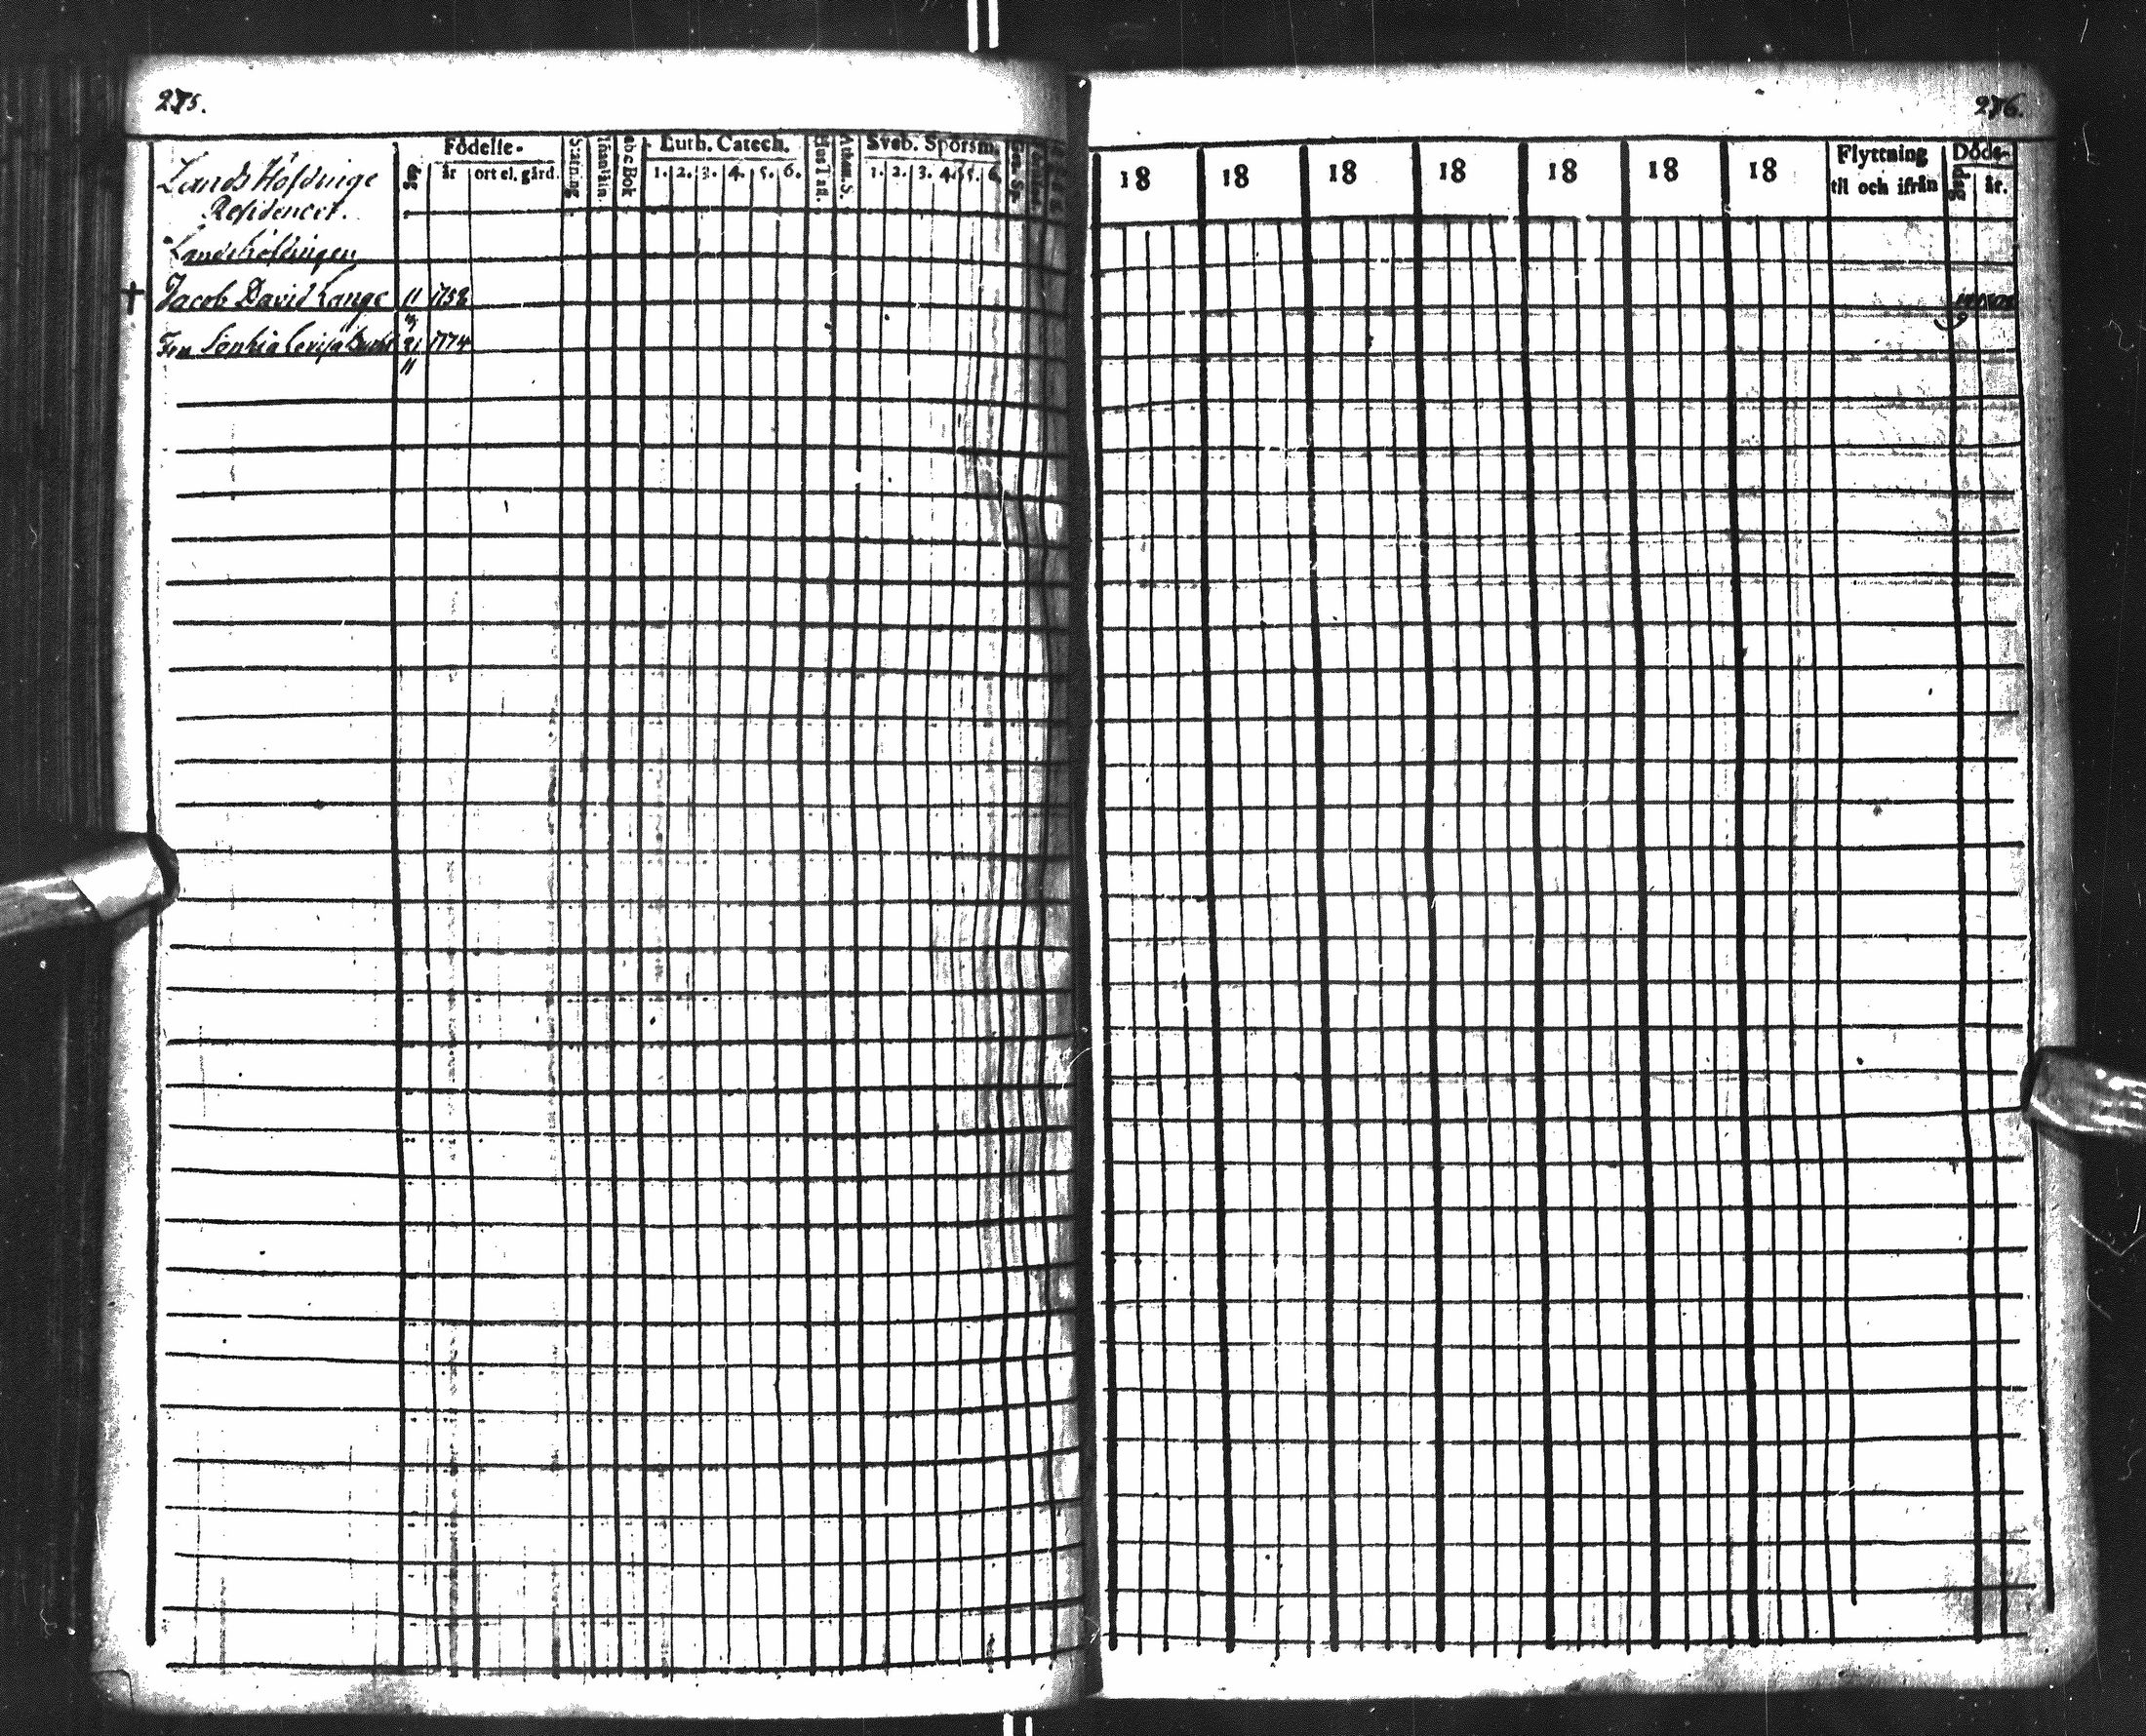 275.
Lands Höfdinge
Residencet.
Födelse-
dag
år
ort el. gård.
Stafning
abcBok
Luth. Catech.
1. 2. 3. 4. 5. 6.
Hus Taf.
Athan. S.
Sveb. Spörsm.
1. 2. 3. 4. 5. 6.
Landshöfdingen
† Jacob David Lange 11 1758
3
Fru Sophia Lovisa 21 1774
11
276.
18 18 18 18 18 18 18
Flyttning
til och ifrån
Döds-
dag
år.